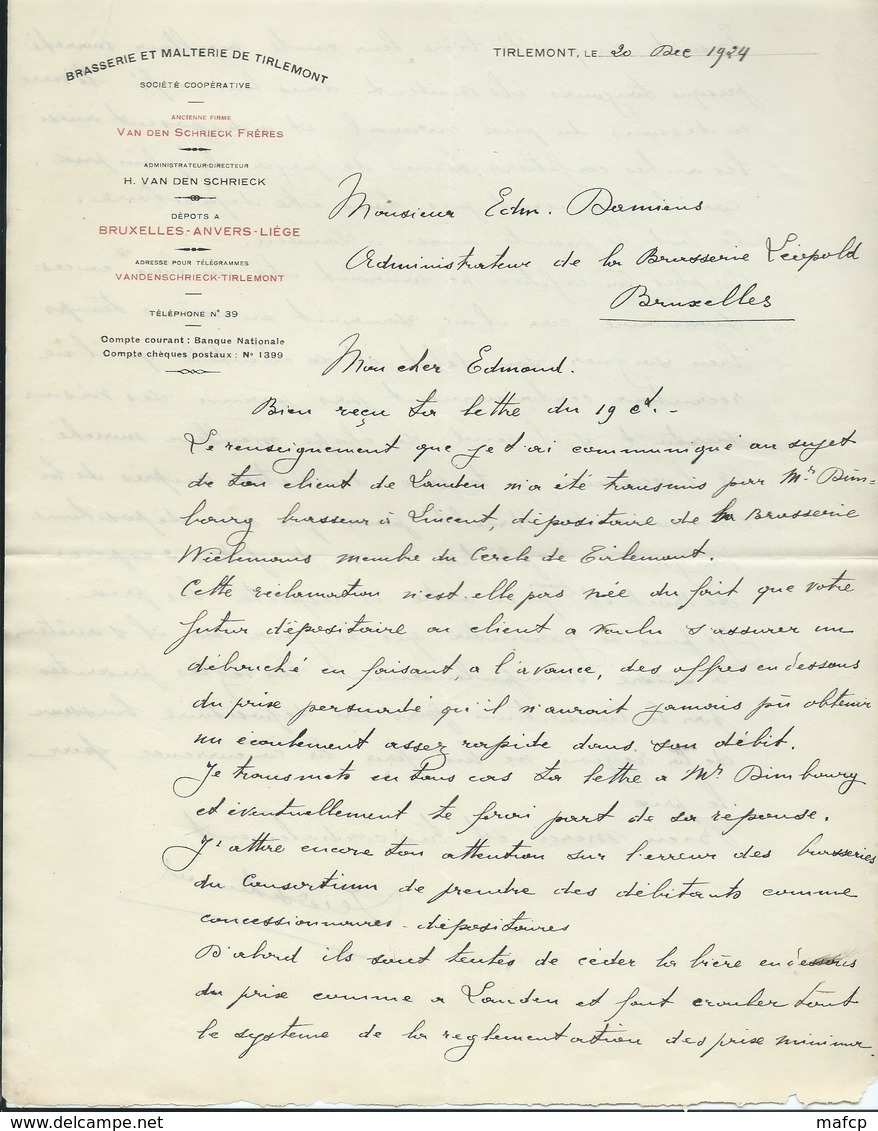 BRASSERIE ET MALTERIE DE TIRLEMONT
SOCIÉTÉ COOPÉRATIVE
ANCIENNE FIRME
VAN DEN SCHRIECK FRÈRES
ADMINISTRATEUR-DIRECTEUR
H. VAN DEN SCHRIECK
DÉPOTS A
BRUXELLES-ANVERS-LIÉGE
ADRESSE POUR TÉLÉGRAMMES
VANDENSCHRIECK-TIRLEMONT
TÉLÉPHONE N° 39
Compte courant : Banque Nationale
Compte chèques postaux : N° 1399
TIRLEMONT, LE 20 Dec 1924
Monsieur Edm. Damiens
Administrateur de la Brasserie Léopold
Bruxelles
Mon cher Edmond.
Bien reçu ta lettre du 19 ct.-
Le renseignement que je t'ai communiqué au sujet
de ton client de Landen m'a été transmis par Mr Dim-
bourg brasseur à Lincent, dépositaire de la Brasserie
Wielemans membre du Cercle de Tirlemont.
Cette réclamation n'est-elle pas née du fait que votre
futur dépositaire ou client a voulu s'assurer un
débouché en faisant, a l'avance, des offres en dessous
du prix persuadé qu'il n'aurait jamais pu obtenir
un écoulement assez rapide dans son débit.
Je transmets en tous cas ta lettre à Mr Dimbourg
et éventuellement te ferai part de sa réponse.
J'attire encore ton attention sur l'erreur des brasseries
du Consortium de prendre des débitants comme
concessionnaires-dépositaires
D'abord ils sont tentes de céder la bière en dessous
du prix comme a Landen et font crouler tout
le système de la reglementation des prix minima.
mafcp